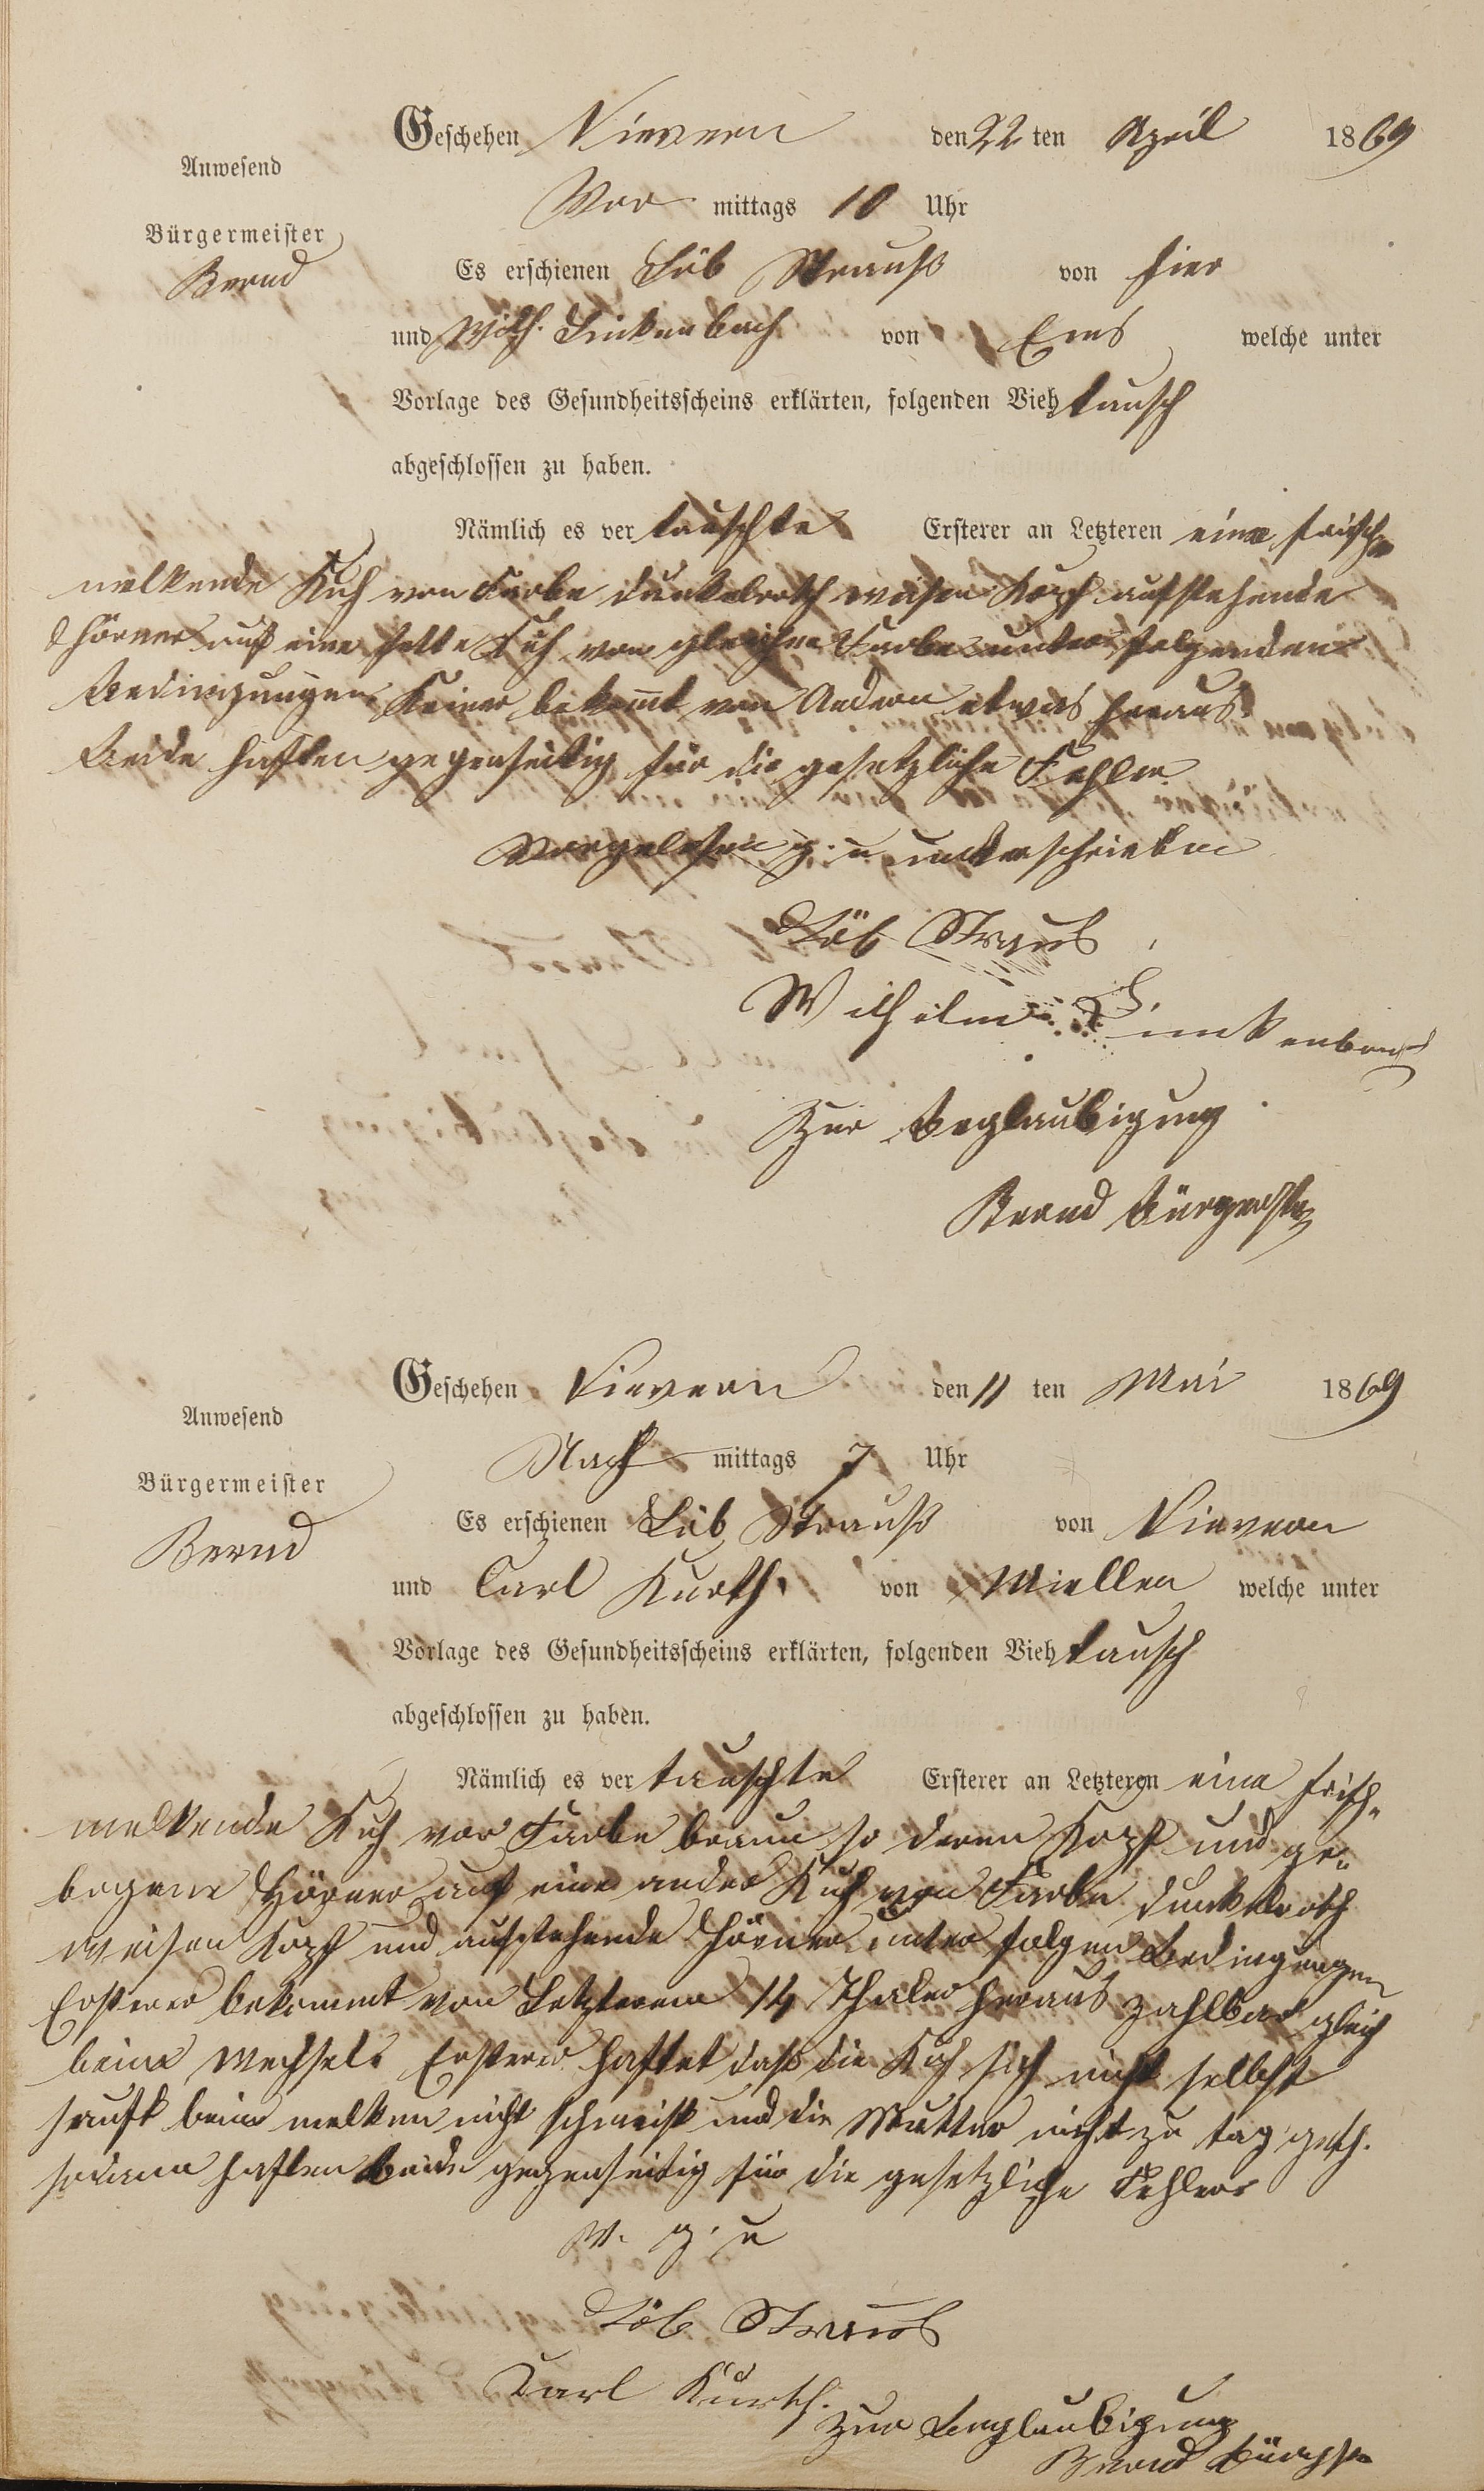 Geschehen Nievern den 22 ten April 1869
Anwesend
Vor mittags 10 Uhr
Bürgermeister
Bernd
Es erschienen Löb Strauß von hier
und Wilh. Linkenbach von Ems welche unter
Vorlage des Gesundheitsscheins erklärten, folgenden Vieh tausch
abgeschlossen zu haben.
Nämlich es ver tauschte Ersterer an Letzteren eine frisch
melkende Kuh von Farbe dunkelroth weisen Kopf aufstehende
Hörner auf eine fette Kuh von gleicher Farbe unter folgenden
Bedingungen Keiner bekomt von Andern etwas heraus.
Beide haften gegenseitig für die gesetzliche Fehler
Vorgelesen g. u unterschrieben
Löb Straus
Wilhelm Linkenbach
Zur Beglaubigung
Bernd Bürgerstr
Geschehen Nievern den 11 ten Mai 1869
Anwesend
Nach mittags 7 Uhr
Bürgermeister
Bernd
Es erschienen Löb Strauß von Nievern
und Carl Kurth von Miellen welche unter
Vorlage des Gesundheitsscheins erklärten, folgenden Vieh tausch
abgeschlossen zu haben.
Nämlich es ver tauschte Ersterer an Letzteren eine frisch-
melkende Kuh von Farbe braun so deren Kopf und ge-
bogene Hörner auf eine ander Kuh von Farbe dunkelroth
weisen Kopf und aufstehende Hörner unter folgen Bedingungen
Ersterer bekommt von Letzterem 14 Thaler heraus zahlbar gleich
beim Wechsel. Ersterer haftet daß die Kuh sich nicht selbst
sauft beim melken nicht schmeist und die Mutter nicht zu tag geth.
sodann haften Beide gegenseitig für die gesetzliche Fehler
V. g. u
Löb Straus
Karl Kurth.
Zur Beglaubigung
Bernd Bürgstr